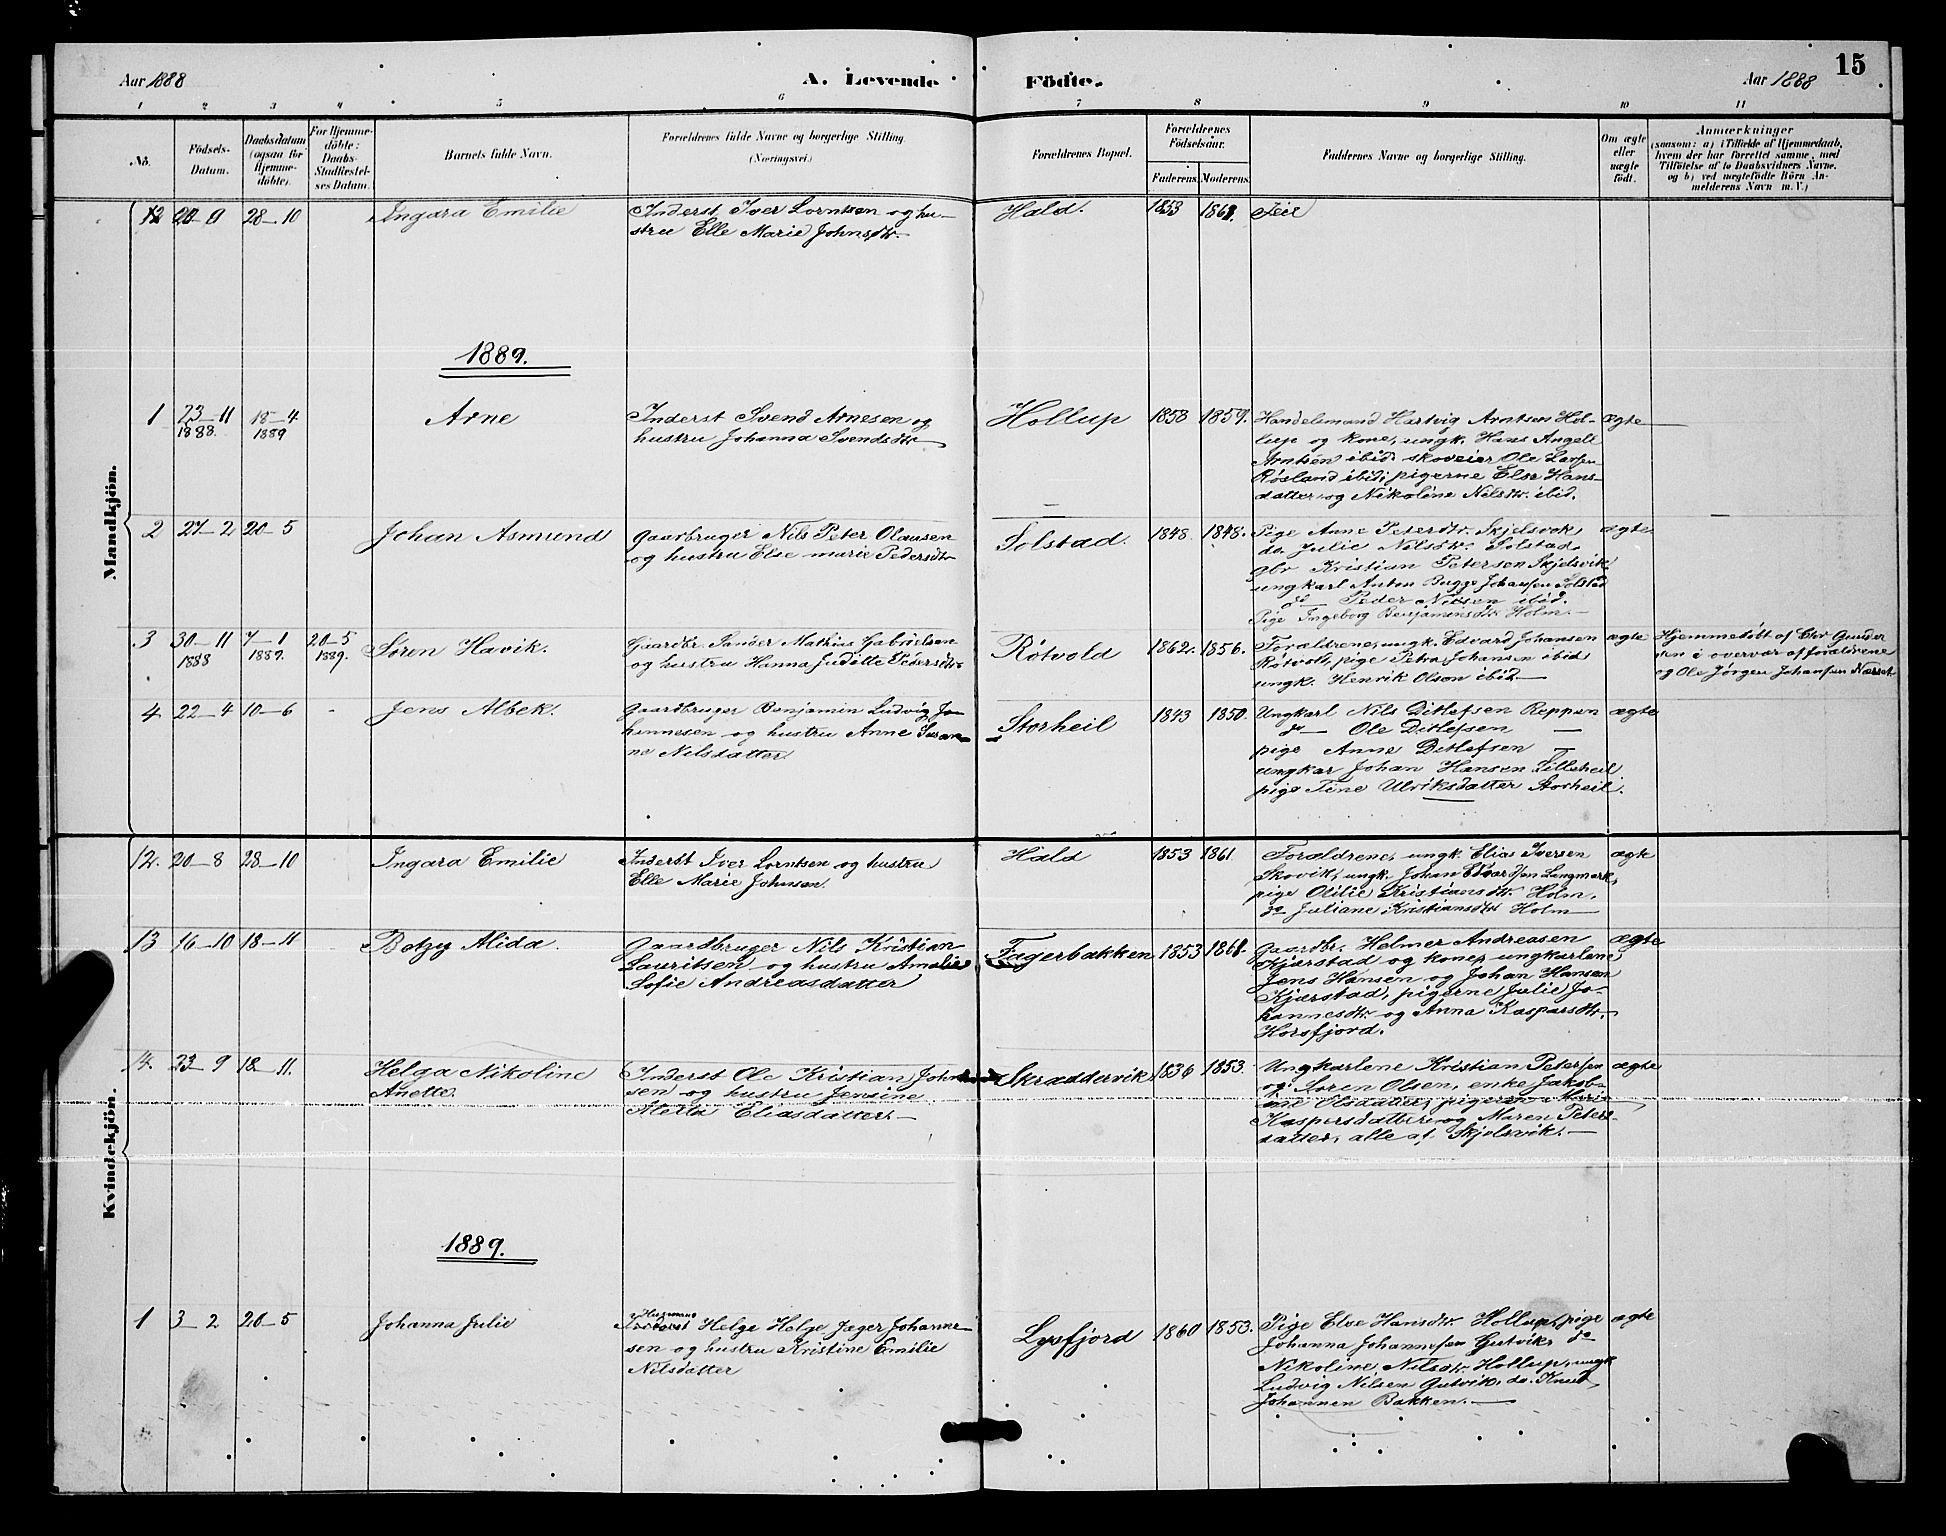 15
Aar 1888
A. Levende
Födte.
Aar 1888
1 2 3 4 5 6 7 8 9 10 11
No.
Födsels-
Datum.
Daabsdatum
(ogsaa for
Hjemme-
döbte).
For Hjemme-
döbte:
Daabs-
Stadfæstel-
ses Datum.
Barnets fulde Navn.
Forældrenes fulde Navne og borgerlige Stilling
(Næringsvei.)
Forældrenes Bopæl.
Forældrenes
Födselsaar.
Faderens. Moderens.
Faddernes Navne og borgerlige Stilling.
Om ægte
eller
uægte
födt.
Anmærkninger
(saasom: a) i Tilfælde af Hjemmedaab,
hvem der har forrettet samme, med
Tilföielse af to Daabsvidners Navne,
og b) ved uægtefödte Börn An-
melderens Navn m. V.)
Mandkjön.
12 20-9 28-10 Ingara Emilie
Inderst Iver Lorntsen og hu-
stru Elle Marie Johnsdtr.
Hald. 1853 1861. Feil
1889.
1 23-11
1888. 18-4
1889 Arne
Inderst Svend Arnesen og
hustru Johanna Svendsdtr
Hollup 1858 1859.
Handelsmand Hartvig Arntsen Hol-
lup og kone, ungk. Hans Angell
Arntsen ibid. skoveier Ole Larsen
Røsland ibid; pigerne Else Hans-
datter og Nikoline Nilsdtr. ibid.
ægte
2 27-2 20-5 Johan Asmund
Gaardbruger Nils Peter Olausen
og hustru Else Marie Pedersdtr
Solstad. 1848. 1848.
Pige Anne Petersdtr. Skjelsvik,
do. Julie Nilsdtr. Solstad,
gbr Kristian Petersen Skjelsvik
ungkarl Anton Bugge Johansen Solstad
do — Peder Nilsen ibid.
Pige Ingeborg Benjaminsdtr Holm.
ægte
3 30-11
1888 7-1
1889. 20-5
1889. Søren Havik.
Gaardbr. Sander Mathias Gabrielsen
og hustru Hanna Juditte Pedersdtr
Røtvold 1862. 1856.
Forældrene, ungk. Edvard Johansen
Røtvold, pige Petra Johansen ibid
ungk. Henrik Olsen ibid.
ægte
Hjemmedøbt af Chr Gunder
sen i overvær af forældrene
og Ole Jørgen Johansen Næsset
4 22-4 10-6 - Jens Albek.
Gaardbruger Benjamin Ludvig Jo-
hannesen og hustru Anne Susan-
ne Nilsdatter
Storheil 1843 1850.
Ungkarl Nils Ditlefsen Reppen
do — Ole Ditlefsen —
pige Anne Ditlefsen —
ungkar Johan Hansen Lilleheil
pige Tine Ulriksdatter Storheil.
ægte
Kvindekjön.
12. 20-8 28-10 Ingara Emilie
Inderst Iver Lorntsen og hustru
Elle Marie Johnsen.
Hald 1853 1861.
Forældrene, ungk. Elias Iversen
Skovik, ungk. Johan Edvardsen Langmark,
pige Otilie Kristiansdtr. Holm,
do Juliane Kristiansdtr Holm
ægte
13 16-10 18-11 Betzy Alida
Gaardbruger Nils Kristian
Lauritsen og hustru Amalie
Sofie Andreasdatter
Fagerbakken 1853 1861.
Gaardbr. Helmer Andreasen
Kjærstad og kone, ungkarlene
Jens Hansen og Johan Hansen
Kjærstad, pigerne Julie Jo-
hannesdtr. og Anna Kaspersdtr.
Horsfjord.
ægte
14. 23-9 18-11. Helga Nikoline
Anette.
Inderst Ole Kristian John
sen og hustru Jensine
Aletta Eliasdatter.
Skræddervik 1836 1853.
Ungkarlene Kristian Petersen
og Søren Olsen, enke Jakob-
ine Olsdatter, pigerne Marie
Kaspersdatter og Maren Peters-
datter, alle af Skjelsvik.
ægte
1889.
1 3-2 20-5 Johanna Julie
Husmand
Inderst Helge Helge Jæger Johanne-
sen og hustru Kristine Emilie
Nilsdatter
Lysfjord 1860 1853.
Pige Else Hansdtr. Hollup, pige
Johanna Johannesen Gutvik, do
Nikoline Nilsdtr. Hollup, ungk
Ludvig Nilsen Gutvik, do. Knud
Johannen Bakken.
ægte